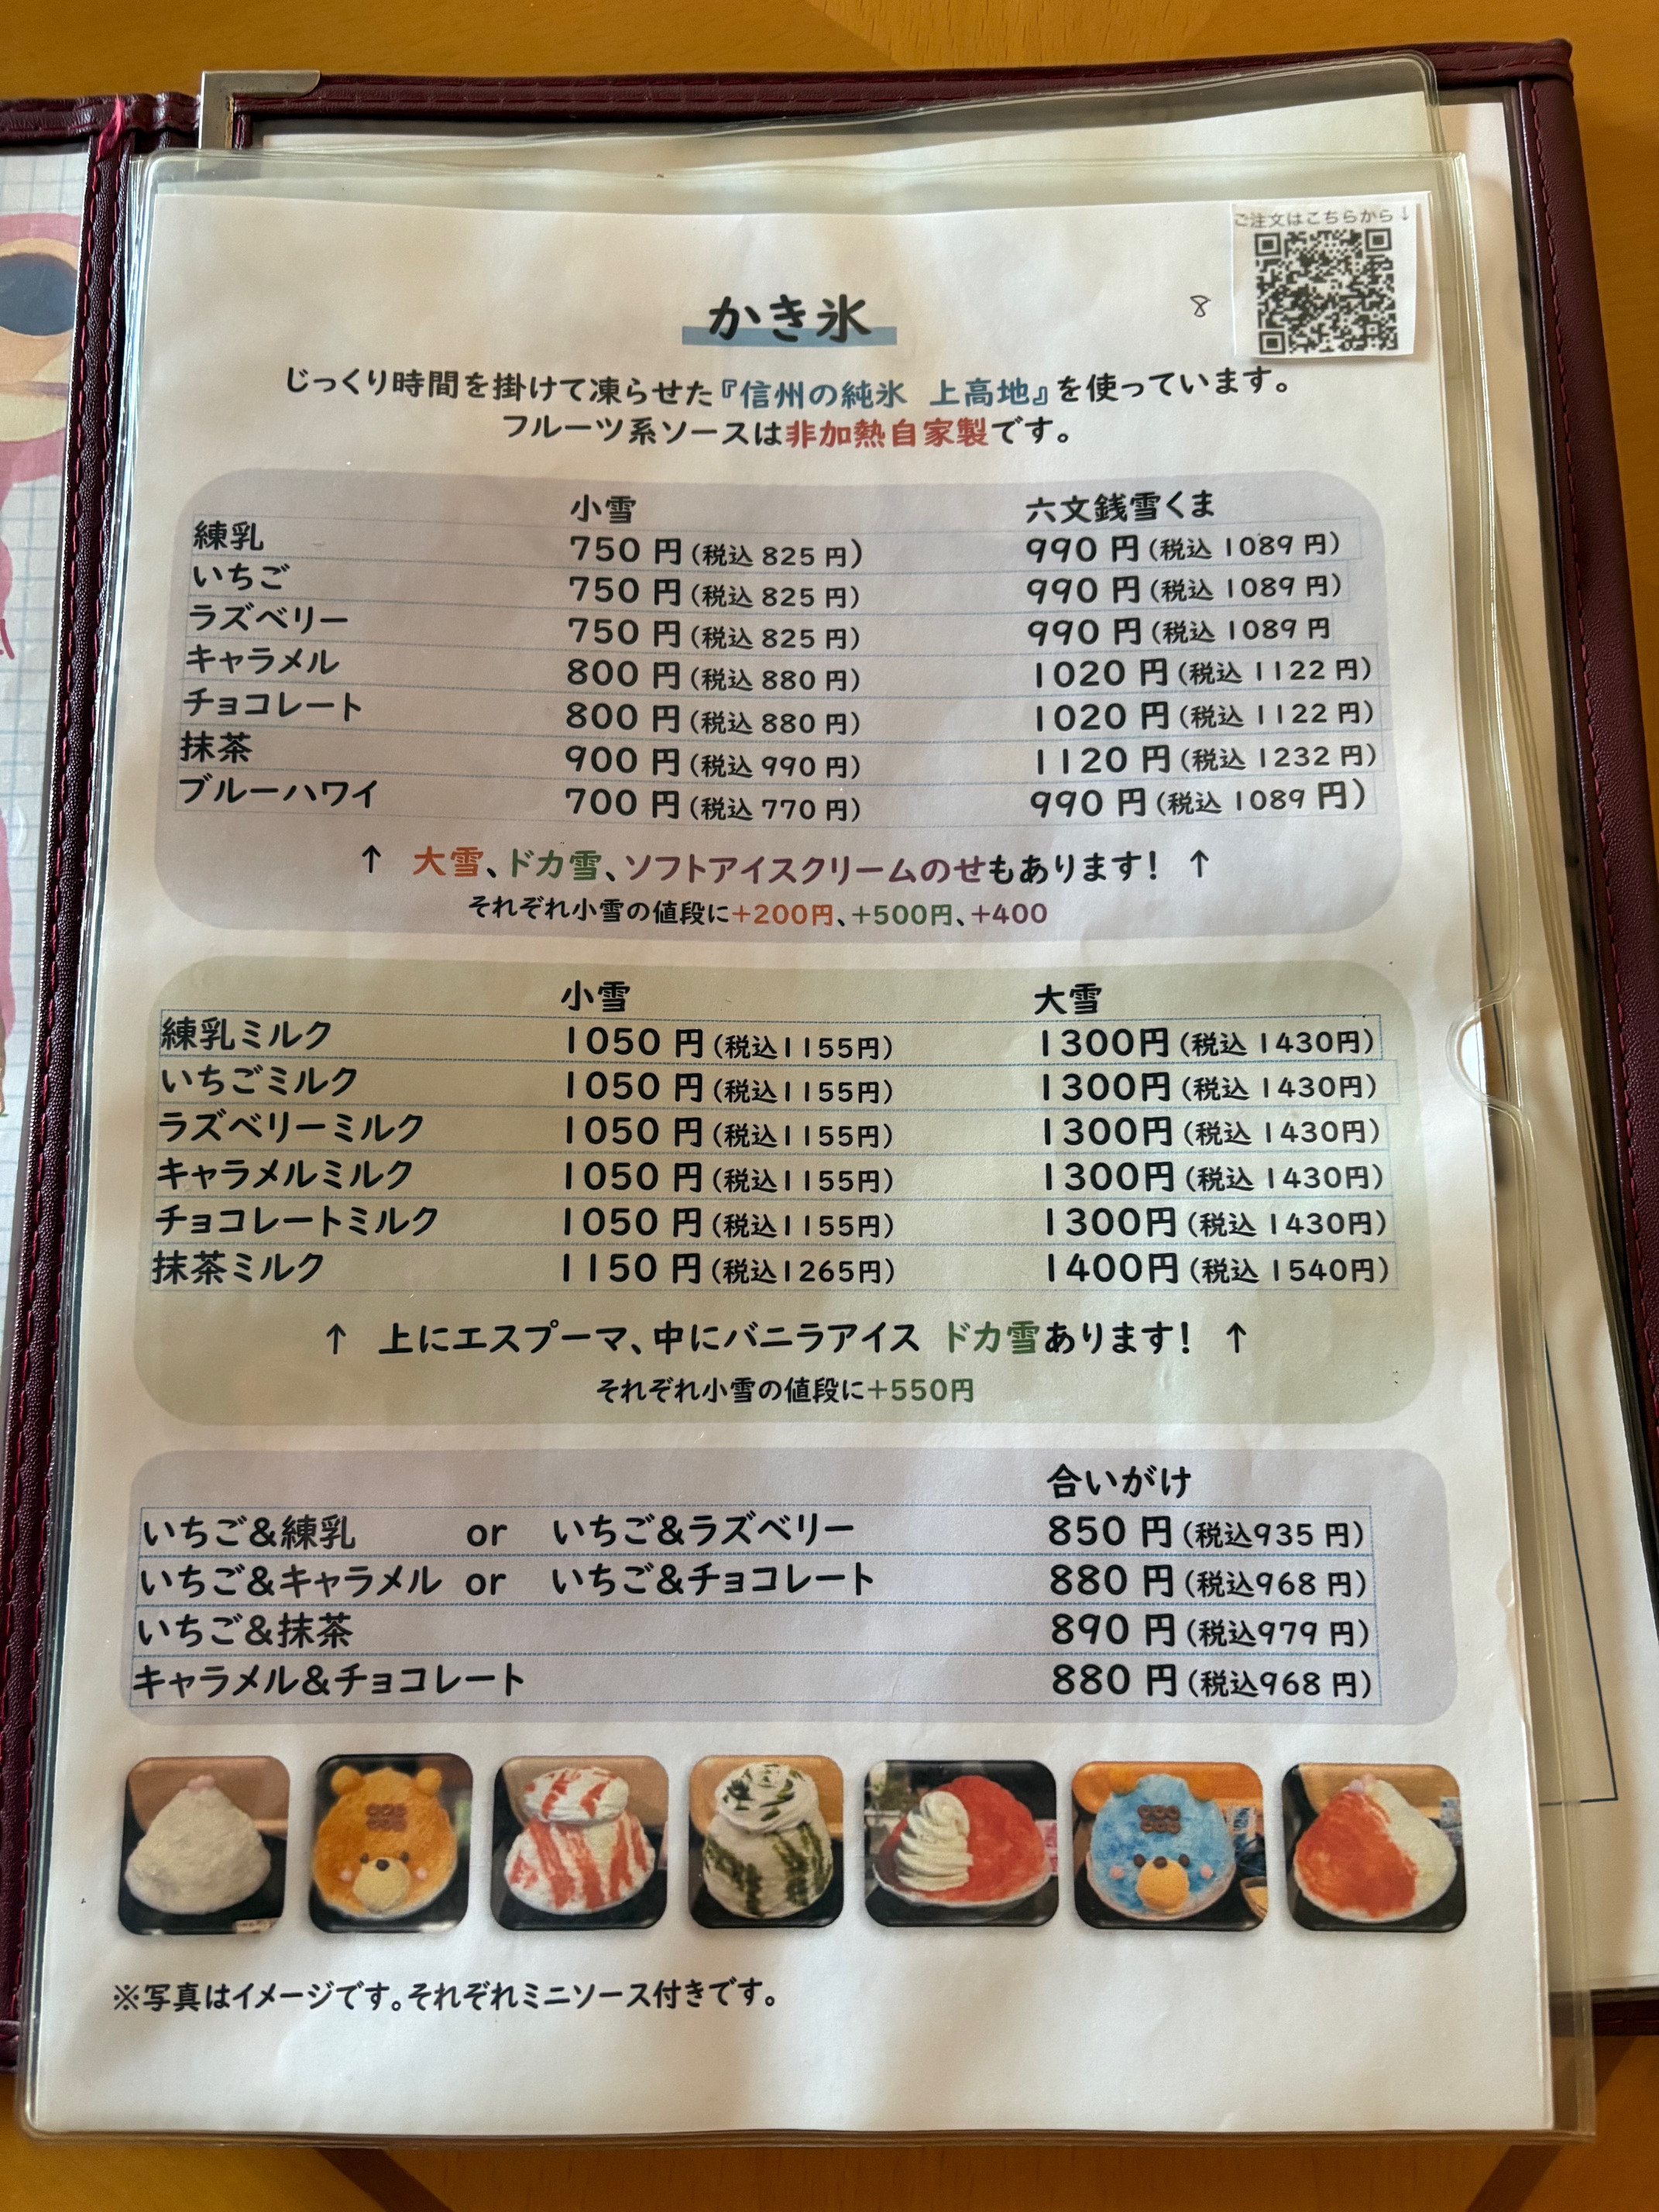 ご注文はこちらから↓
8
かき氷
じっくり時間を掛けて凍らせた『信州の純氷 上高地』を使っています。
フルーツ系ソースは非加熱自家製です。
小雪 六文銭雪くま
練乳 750 円(税込 825 円) 990 円(税込 1089 円)
いちご 750 円(税込 825 円) 990 円(税込 1089 円)
ラズベリー 750 円(税込 825 円) 990 円(税込 1089 円
キャラメル 800 円(税込 880 円) 1020 円(税込 1122 円)
チョコレート 800 円(税込 880 円) 1020 円(税込 1122 円)
抹茶 900 円(税込 990 円) 1120 円(税込 1232 円)
ブルーハワイ 700 円(税込 770 円) 990 円(税込 1089 円)
↑ 大雪、ドカ雪、ソフトアイスクリームのせもあります! ↑
それぞれ小雪の値段に+200円、+500円、+400
小雪 大雪
練乳ミルク 1050 円(税込1155円) 1300円(税込 1430円)
いちごミルク 1050 円(税込1155円) 1300円(税込 1430円)
ラズベリーミルク 1050 円(税込1155円) 1300円(税込 1430円)
キャラメルミルク 1050 円(税込1155円) 1300円(税込 1430円)
チョコレートミルク 1050 円(税込1155円) 1300円(税込 1430円)
抹茶ミルク 1150 円(税込1265円) 1400円(税込 1540円)
↑ 上にエスプーマ、中にバニラアイス ドカ雪あります! ↑
それぞれ小雪の値段に+550円
合いがけ
いちご&練乳 or いちご&ラズベリー 850 円(税込935 円)
いちご&キャラメル or いちご&チョコレート 880 円(税込968 円)
いちご&抹茶 890 円(税込979 円)
キャラメル&チョコレート 880 円(税込968 円)
※写真はイメージです。それぞれミニソース付きです。